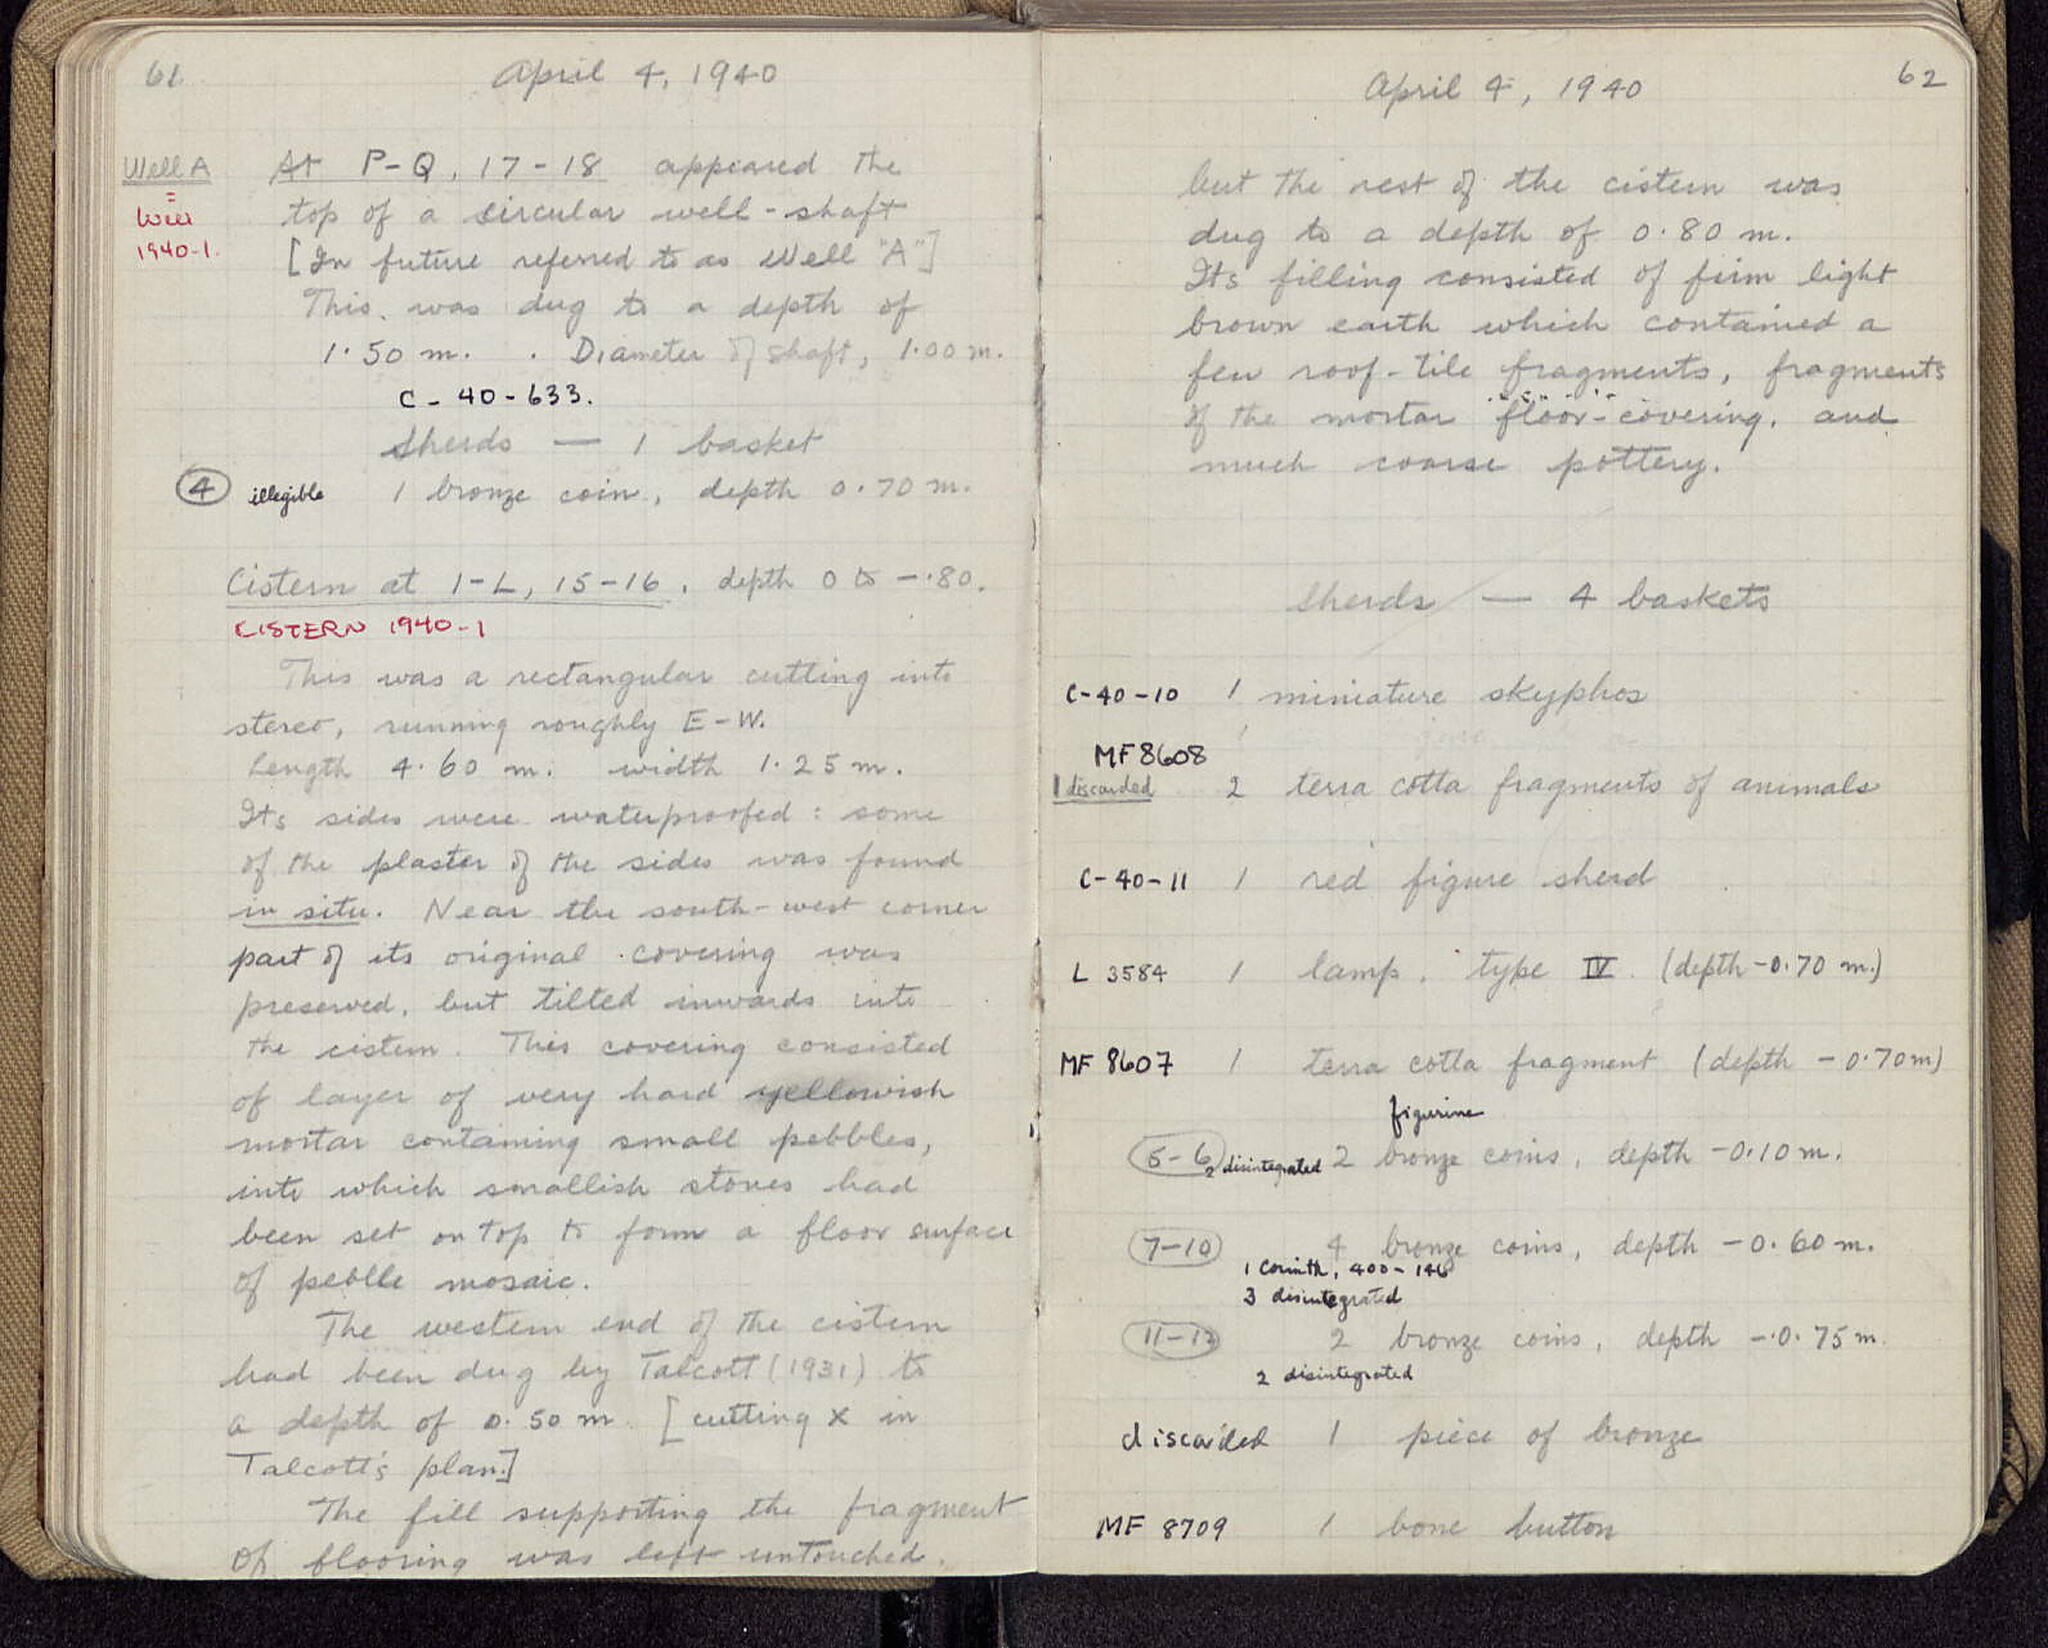 61
April 4, 1940
Well A
=
Well
1940-1.
At P-Q, 17-18 appeared the
top of a circular well-shaft
[In future referred to as Well "A"]
This was dug to a depth of
1.50 m. . Diameter of shaft, 1.00 m.
C-40-633.
Sherds — 1 basket
4 illegible 1 bronze coin, depth 0.70 m.
Cistern at I-L, 15-16. depth 0 to -.80.
CISTERN 1940-1
This was a rectangular cutting into
stereo, running roughly E-W.
Length 4.60 m. width 1.25 m.
Its sides were waterproofed: some
of the plaster of the sides was found
in situ. Near the south-west corner
part of its original covering was
preserved, but tilted inwards into
the cistern. This covering consisted
of layer of very hard yellowish
mortar containing small pebbles,
into which smallish stones had
been set on top to form a floor surface
of pebble mosaic.
The western end of the cistern
had been dug by Talcott (1931) to
a depth of 0.50 m. [cutting X in
Talcott's plan.]
The fill supporting the fragment
of flooring was left untouched.
62
April 4, 1940
but the rest of the cistern was
dug to a depth of 0.80 m.
Its filling consisted of firm light
brown earth which contained a
few roof-tile fragments, fragments
of the mortar floor-covering, and
much coarse pottery.
Sherds — 4 baskets
C-40-10 1 miniature skyphos
MF 8608
1 discarded 2 terra cotta fragments of animals
C-40-11 1 red figure sherd
L 3584 1 lamp. type IV (depth -0.70 m.)
MF 8607 1 terra cotta fragment (depth -0.70 m)
figurine
5-6 2 disintegrated 2 bronze coins, depth -0.10 m.
7-10 4 bronze coins, depth -0.60 m.
1 Corinth, 400-146
3 disintegrated
11-12 2 bronze coins, depth -0.75 m.
2 disintegrated
discarded 1 piece of bronze
MF 8709 1 bone button